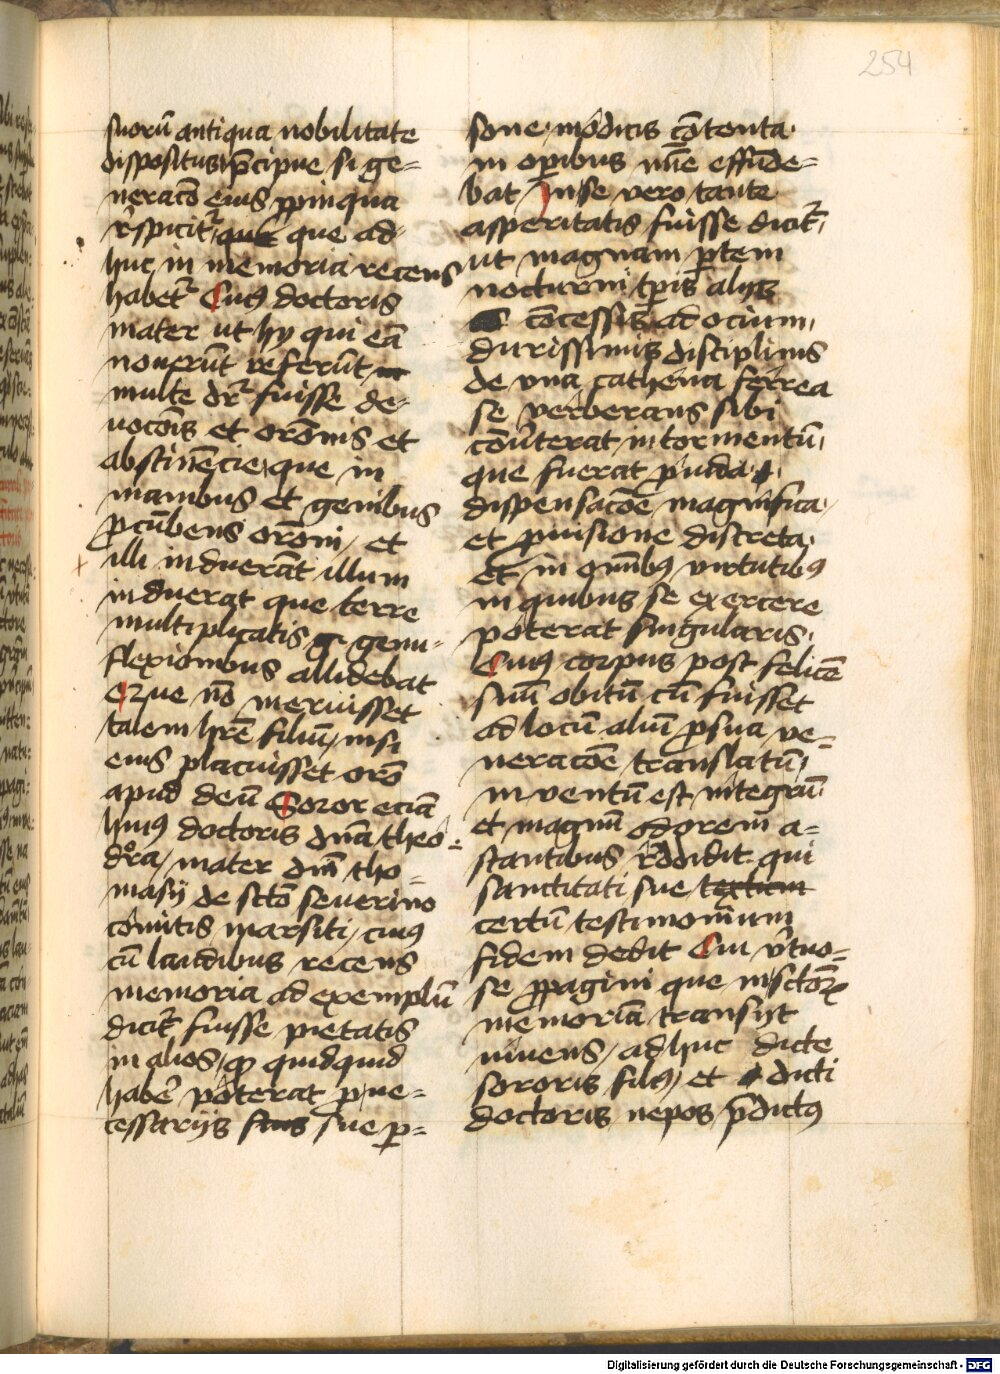 254
suorū antiqua nobilitate
dispositus p̄cipue si ge-
neracō eius ꝓpinqua
r̄spicit᷑ que ad-
huc in memoria recens
habet᷑ Cuiꝰ doctoris
mater ut hy qui eā
nouerūt referūt
multe dr᷑ fuisse de-
uocōnis et orōnis et
abstinēcie que in
manibus et genibus
ꝓcūbens orōni et
illi induerāt illum
induerat que terre
multiplicatis genu-
flexionibus allidebat
Ezue nō meruisset
talem hr̄e filiū nisi
eius placuisset orō
apud deū Soror eciā
huiꝰ doctoris dn̄a theo-
dora mater dn̄i tho-
masij de sctō seuerino
cōmitis marsiti cuiꝰ
cū laudibus recens
memoria ad exemplū
dicit᷑ fuisse pietatis
in alios ꝙ quidquid
habe᷑ poterat p̱ ne-
cessarijs sue p̱-
sone modicis cōtenta
in op̱ibus mīe effūde-
bat In se vero tante
asperitatis fuisse dicit᷑
ut magnam p̱tem
nocturni tp̄is alijs
cōcessis ad ocium
durissimis disciplinis
de vna cathena ferrea
se verberans sibi
cōũterat in tormentū
que fuerat ꝓuida
dispensacōe magnifica
et ꝓuisione discreta
et in om̄ibꝰ virtutibꝰ
in quibus se exercere
poterat singularis
Cuiꝰ corpus post felicē
suū obitū cū fuisset
ad locū aliū ꝓ sua ve-
neracōe translatū
inventū est integrū
et magnū odorem a-
stantibus reddidit qui
sanctitati sue
certū testimonium
fidem dedit Cui v̓tuo-
se ꝓpagini que in sctōꝝ
memoriā transijt
viuens adhuc dicte
sororis filiꝰ et dicti
doctoris nepos p̄dictꝰ
Digitalisierung gefördert durch die Deutsche Forschungsgemeinschaft - DFG